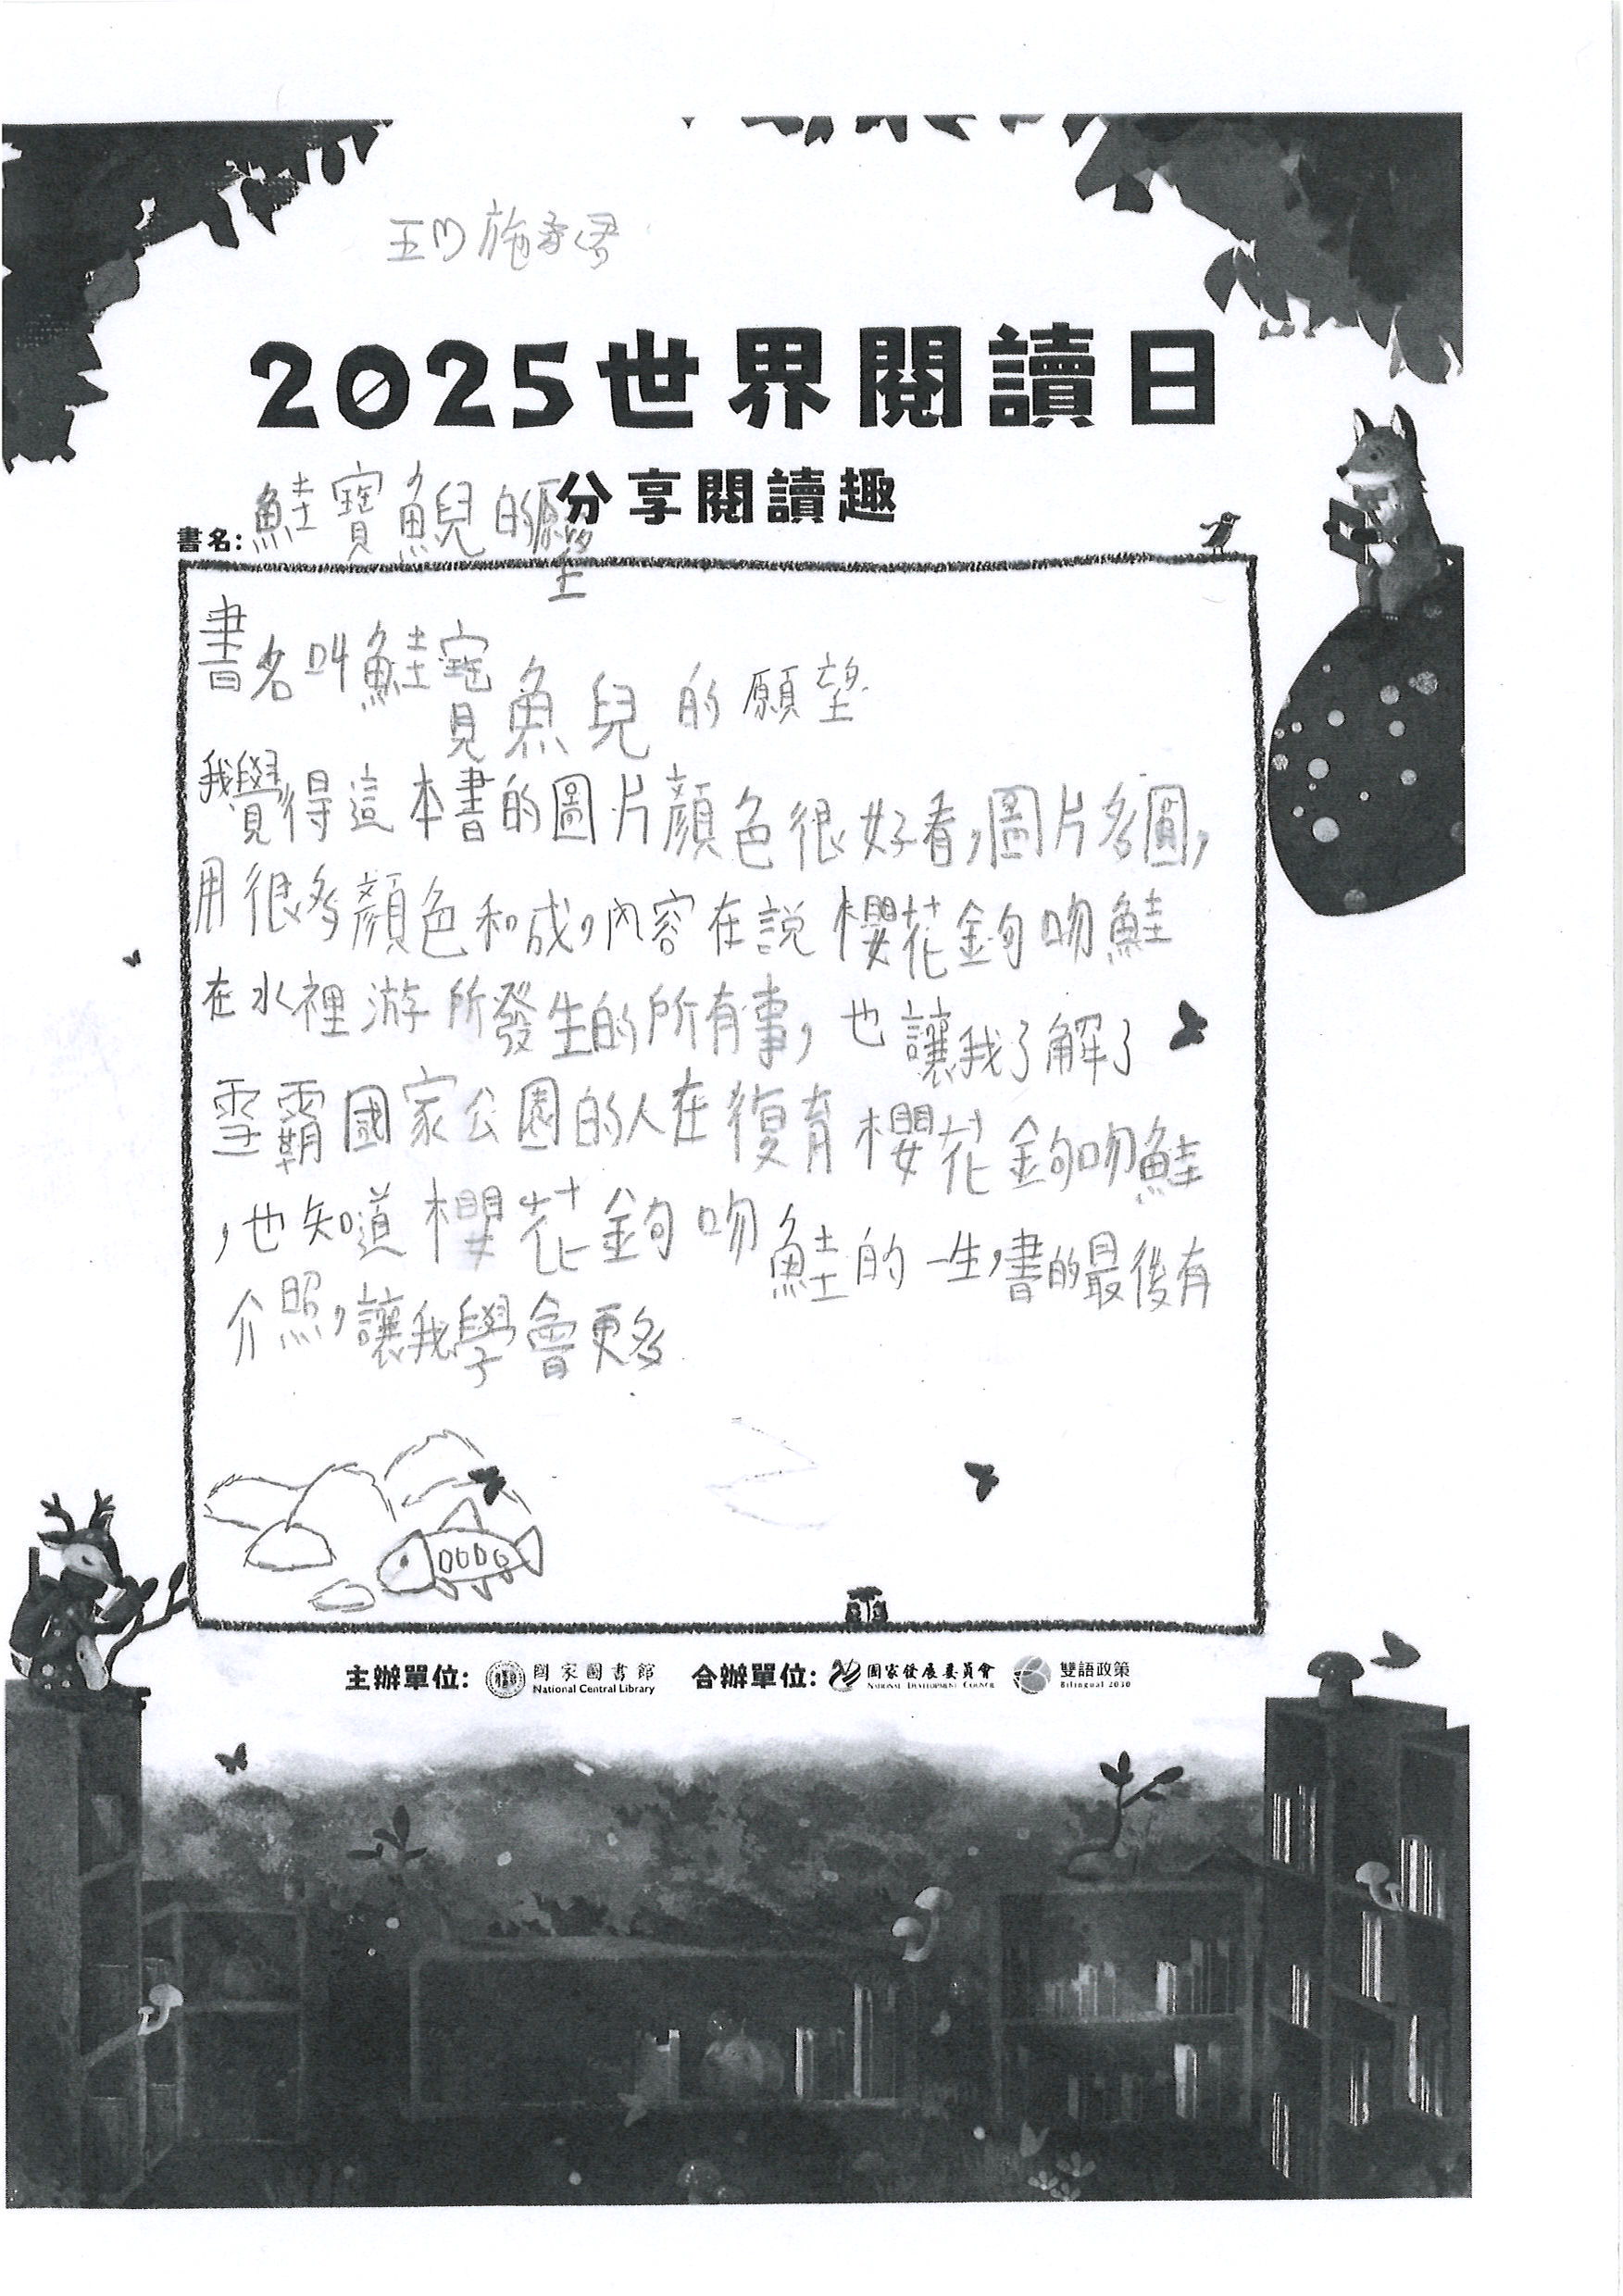 施
2025世界閱讀日
分享閱讀趣
書名: 鮭寶魚兒的願望
書名叫鮭寶魚兒的願望
我覺得這本書的圖片顏色很好看,圖片多圓,
用很多顏色和成,內容在說櫻花鉤吻鮭
在水裡游所發生的所有事,也讓我了解了
雪霸國家公園的人在復育櫻花鉤吻鮭
,也知道櫻花鉤吻鮭的一生,書的最後有
介照,讓我學會更多
主辦單位: 國家圖書館 National Central Library 合辦單位: 國家發展委員會 National Development Council 雙語政策 Bilingual 2030